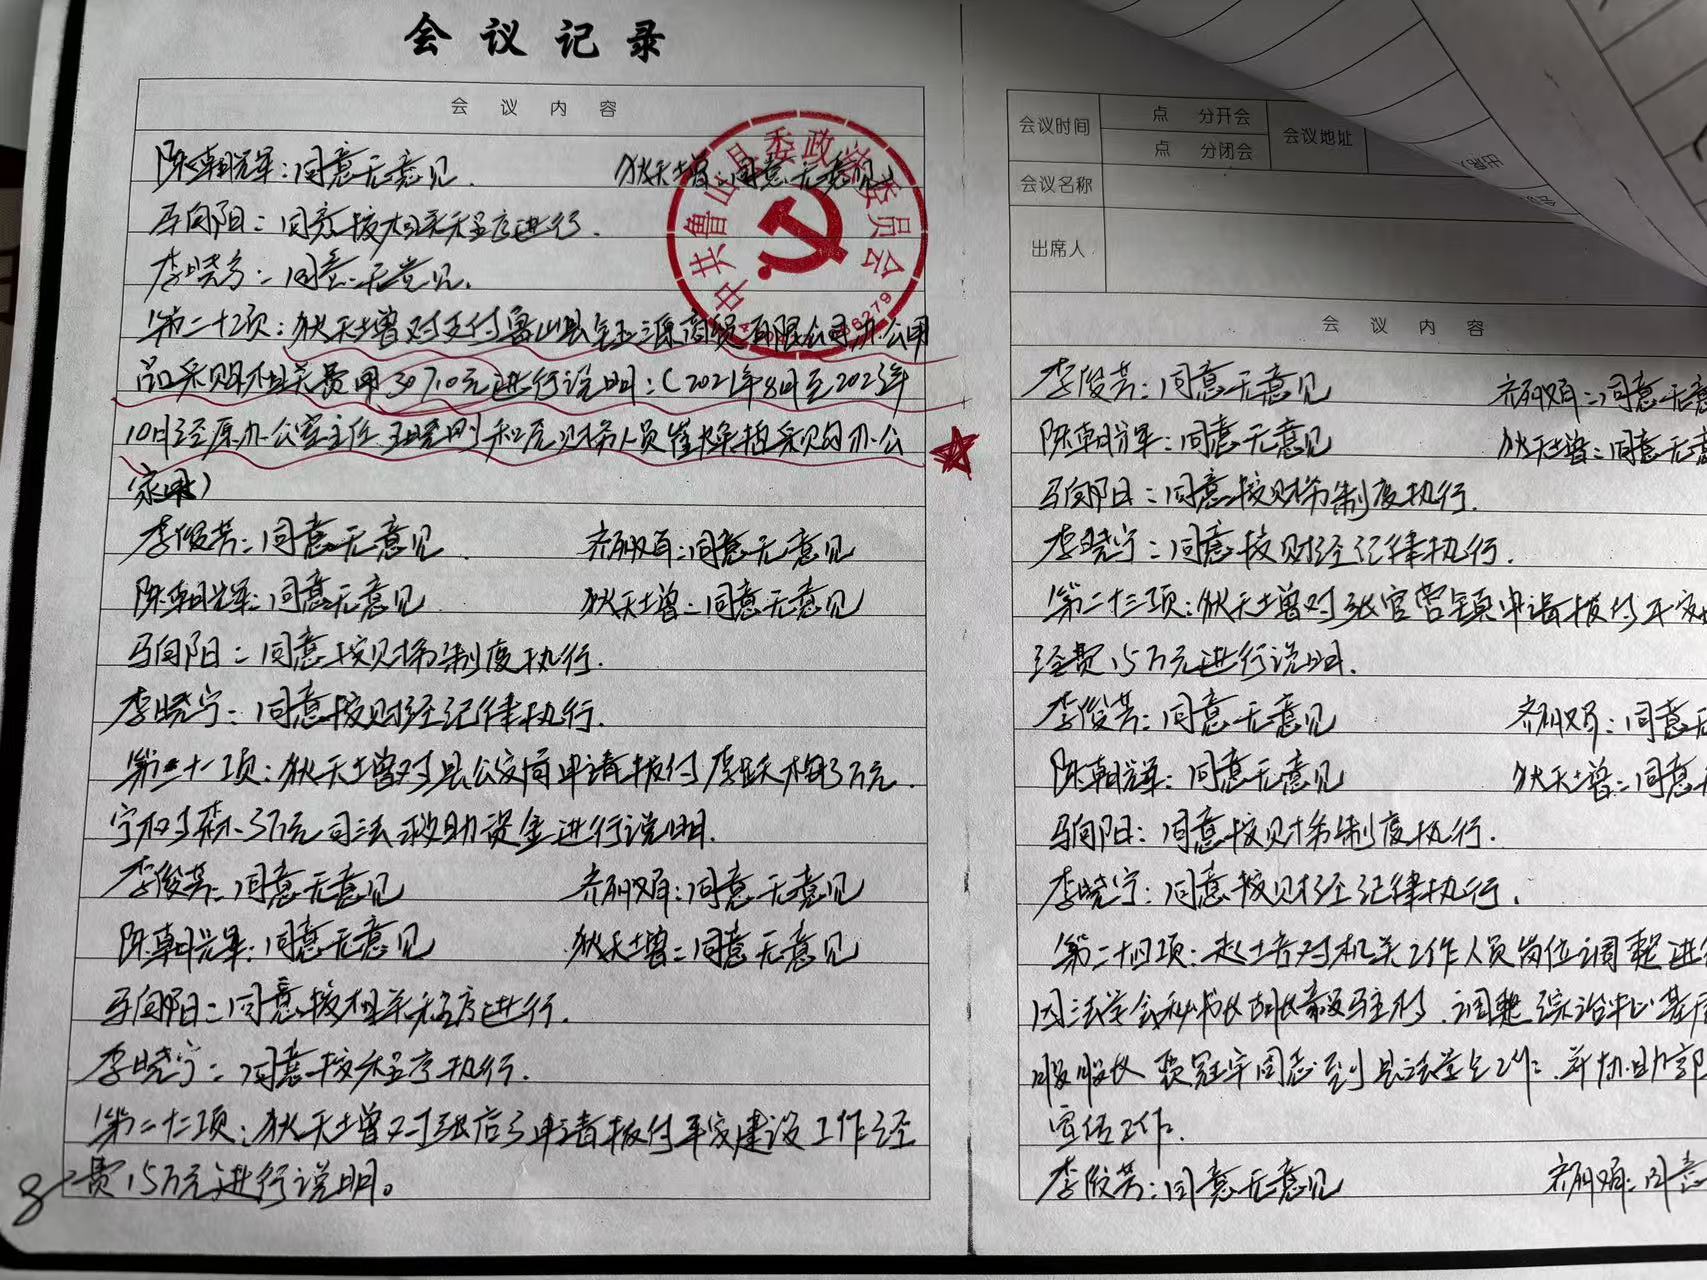 会议记录
会议内容
陈朝辉:同意无意见. 狄天增:同意无意见
马向阳:同意按相关程序进行.
李晓宁:同意无意见.
第二十项:狄天增对支付鲁山县 源商贸有限公司办公用
品采购相关费用30710元进行说明:(2021年8月至2023年
10月经原办公室主任 和 财务人员崔 采购的办公
家 )
李俊芳:同意无意见. 齐 :同意无意见
陈朝辉:同意无意见 狄天增:同意无意见
马向阳:同意按财务制度执行.
李晓宁:同意按财经纪律执行.
第二十一项:狄天增对县公安局申请拨付李跃梅3万元.
宁 3万元司法救助资金进行说明.
李俊芳:同意无意见 齐 :同意无意见
陈朝辉:同意无意见 狄天增:同意无意见
马向阳:同意按相关程序进行.
李晓宁:同意按程序执行.
第二十二项:狄天增对张店乡申请拨付平安建设工作经
费15万元进行说明。
8
中共鲁山县委政法委员会
会议时间 点 分开会 会议地址
点 分闭会
会议名称
出席人
会议内容
李俊芳:同意无意见 齐 :同意无意
陈朝辉:同意无意见 狄天增:同意无意
马向阳:同意按财务制度执行.
李晓宁:同意按财经纪律执行.
第二十三项:狄天增对张官营镇申请拨付平安
经费15万元进行说明.
李俊芳:同意无意见 齐 :同意无
陈朝辉:同意无意见 狄天增:同意
马向阳:同意按财务制度执行.
李晓宁:同意按财经纪律执行.
第二十四项:赵 对机关工作人员岗位调整进行
因法学会秘书长 驻村.调整综治中心基
股股长 冠军同志到县法学会工作.并协助
宣传工作.
李俊芳:同意无意见 齐 :同意